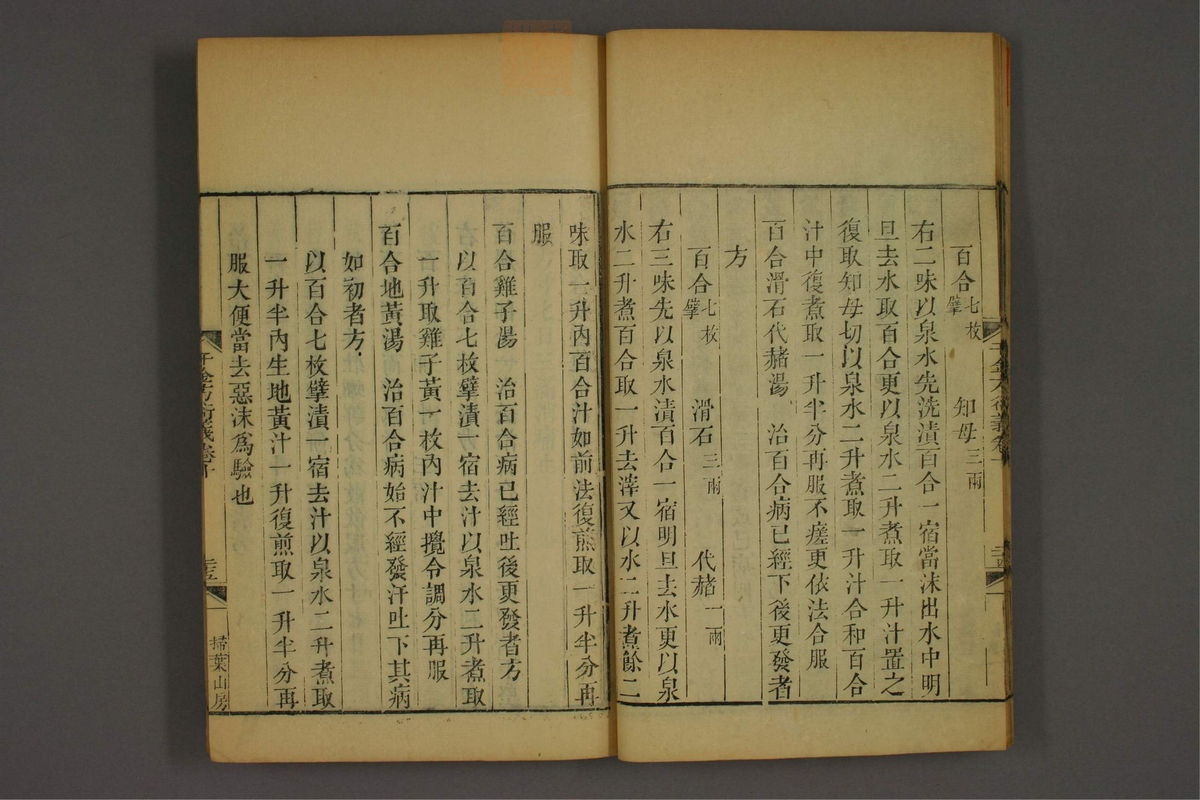 百合七枚擘　知母三兩
右二味以泉水先洗漬百合一宿當沫出水中明
旦去水取百合更以泉水二升煮取一升汁置之
復取知母切以泉水二升煮取一升汁合和百合
汁中復煮取一升半分再服不瘥更依法合服
百合滑石代赭湯　治百合病已經下後更發者
方
百合七枚擘　滑石三兩　代赭一兩
右三味先以泉水漬百合一宿明旦去水更以泉
水二升煮百合取一升去滓又以水二升煮餘二
味取一升內百合汁如前法復煎取一升半分再
服
百合雞子湯　治百合病已經吐後更發者方
以百合七枚擘漬一宿去汁以泉水二升煮取
一升取雞子黃一枚內汁中攪令調分再服
百合地黃湯　治百合病始不經發汗吐下其病
如初者方
以百合七枚擘漬一宿去汁以泉水二升煮取
一升半內生地黃汁一升復煎取一升半分再
服大便當去惡沫為驗也
千金方衍義卷十
掃葉山房